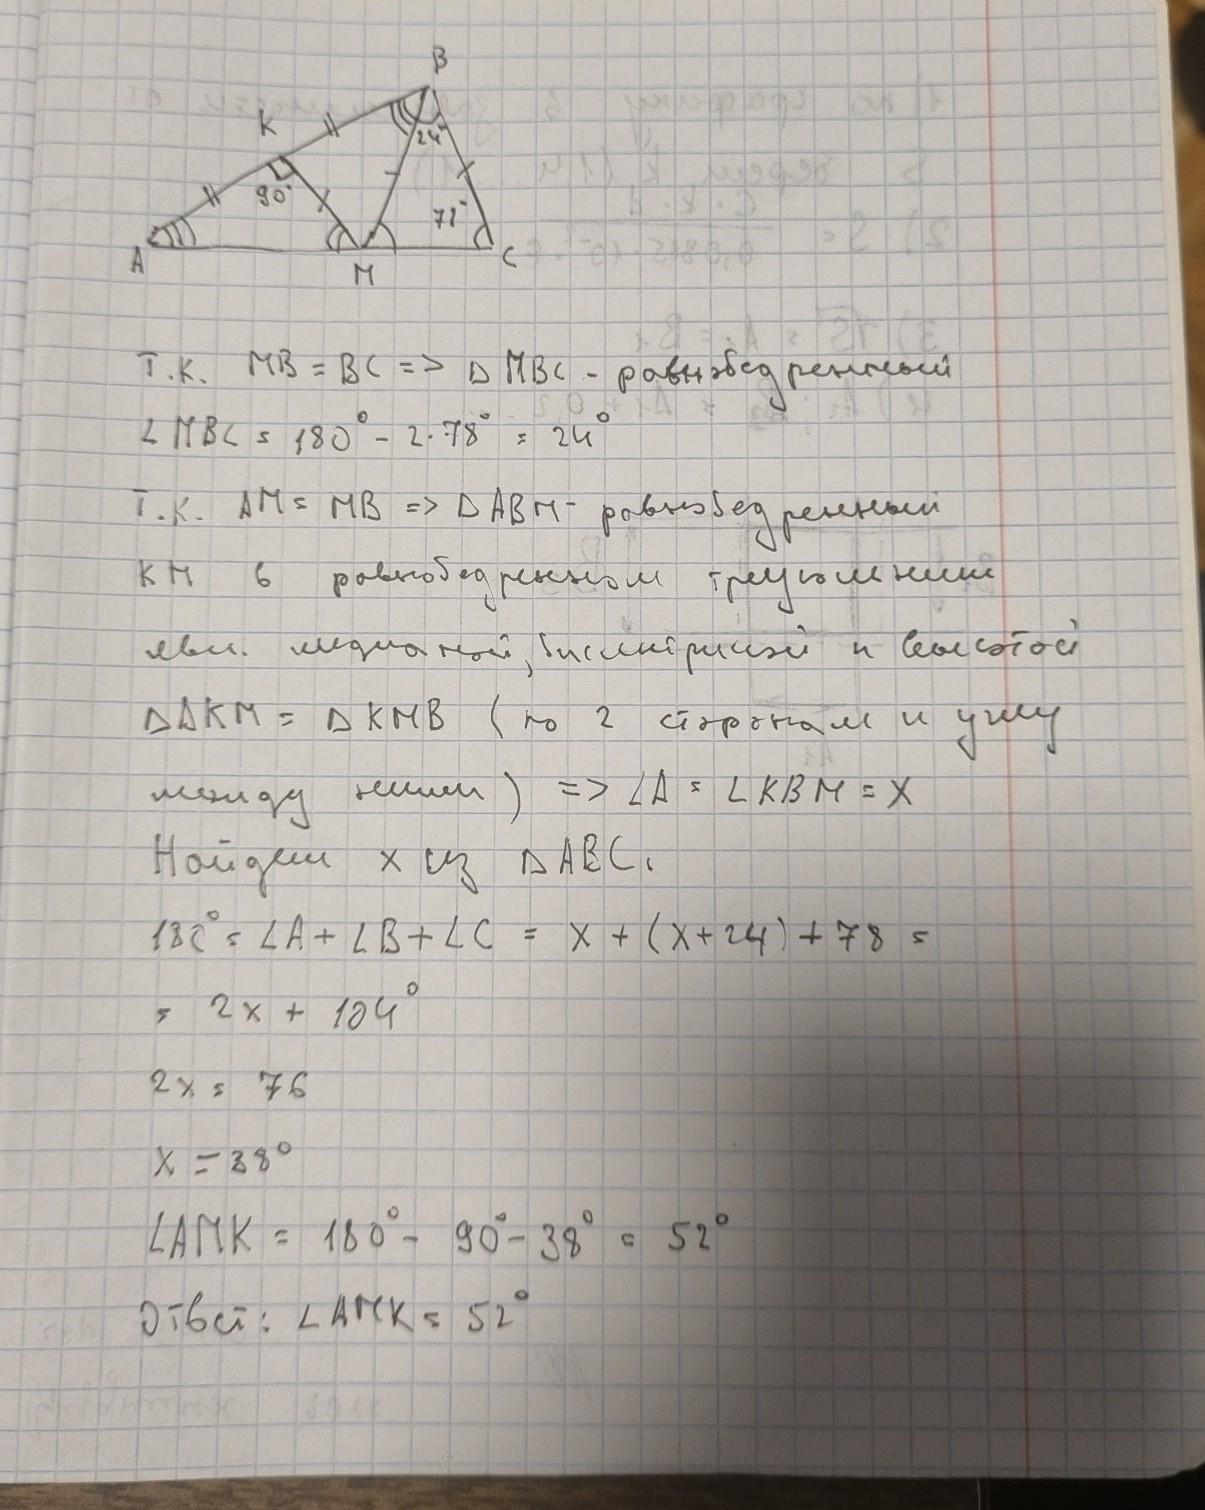 B
K
24°
90°
78°
A
M
C
Т.к. MB = BC => △ MBC - равнобедренный
∠MBC = 180° - 2·78° = 24°
Т.к. AM = MB => △ABM - равнобедренный
KM в равнобедренном треугольнике
явл. медианой, биссектрисой и высотой
△AKM = △KMB (по 2 сторонам и углу
между ними) => ∠A = ∠KBM = x
Найдем x из △ABC.
180° = ∠A + ∠B + ∠C = x + (x+24) + 78 =
= 2x + 104°
2x = 76
x = 38°
∠AMK = 180° - 90° - 38° = 52°
Ответ: ∠AMK = 52°